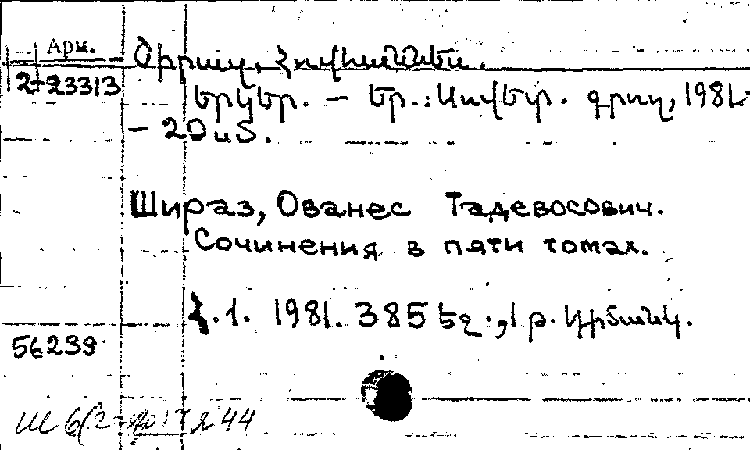 Арм.
2-23313
Շիրազ, Հովհաննես.
Երկեր. — Եր.: Սովետ. գրող, 1981-
— 20 սմ.
Шираз, Ованес Тадевосович.
Сочинения в пяти томах.
Հ.1. 1981. 385 էջ., 1 թ. դիմանկ.
56239
Ш 6(2-